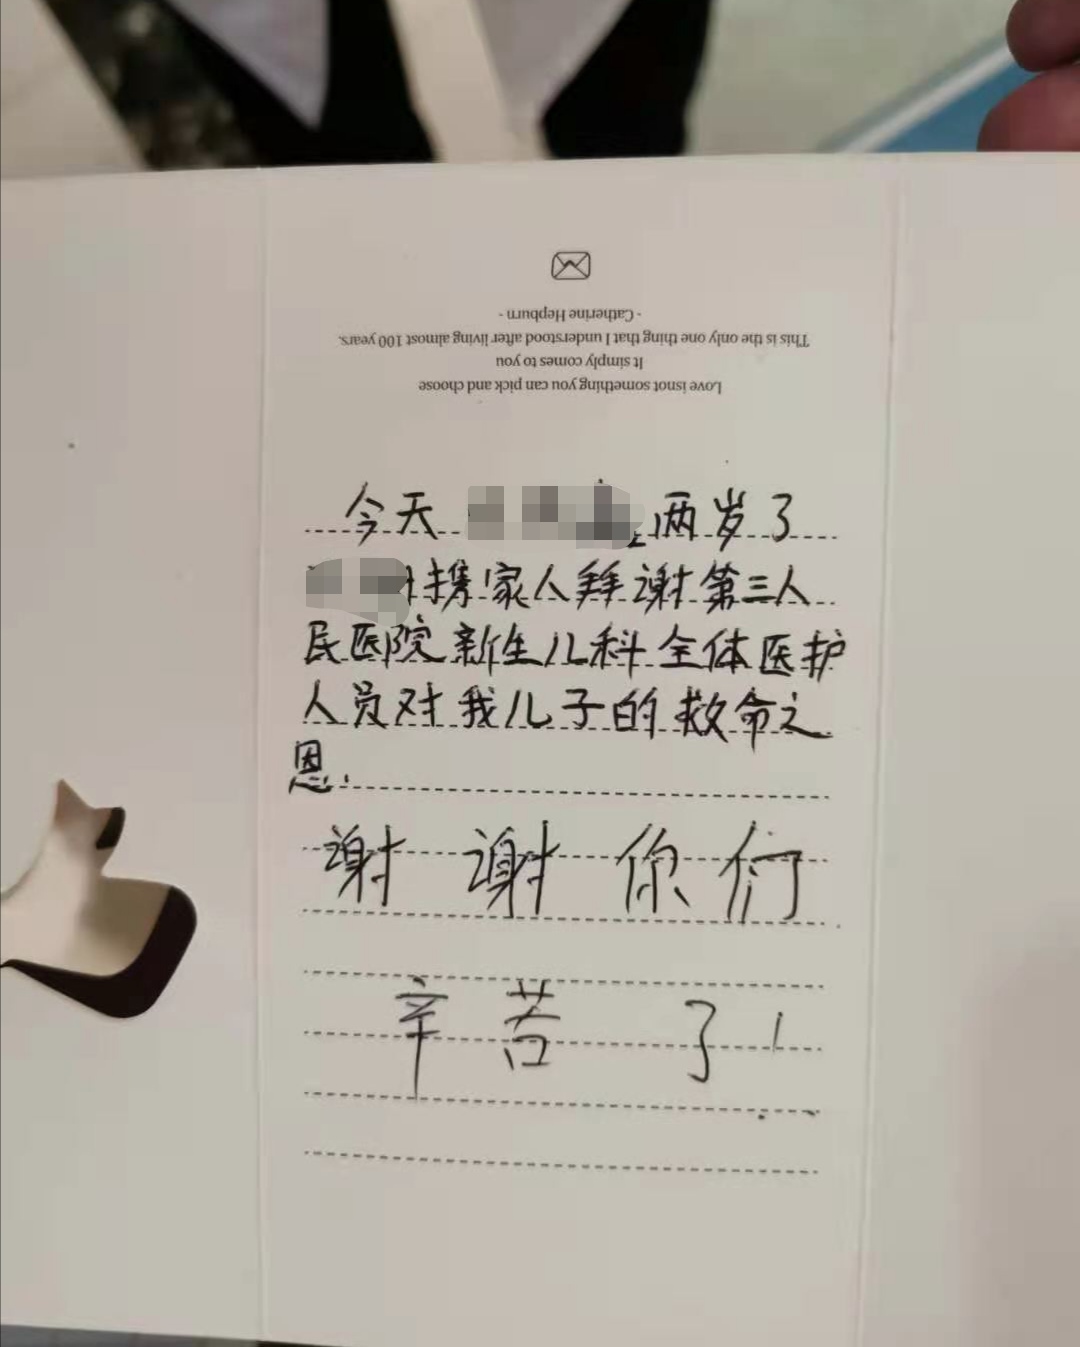 - Catherine Hepburn -
This is the only one thing that I understood after living almost 100 years.
It simply comes to you
Love isnot something you can pick and choose
今天 两岁了
携家人拜谢第三人
民医院新生儿科全体医护
人员对我儿子的救命之
恩.
谢谢你们
辛苦了!